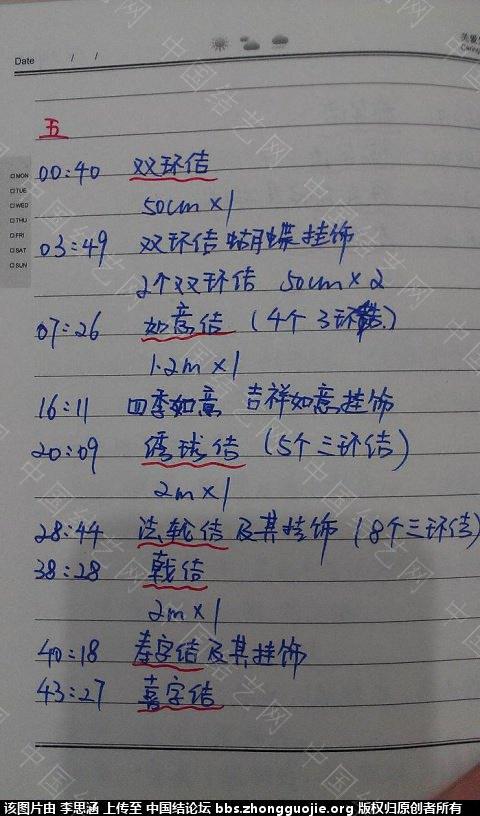 Date / /
五
00:40 双环结
50cm×1
03:49 双环结蝴蝶挂饰
2个双环结 50cm×2
07:26 如意结(4个3环结)
1.2m×1
16:11 四季如意 吉祥如意挂饰
20:09 绣球结(5个三环结)
2m×1
28:44 法轮结及其挂饰(8个三环结)
38:28 戟结
2m×1
40:18 寿字结及其挂饰
43:27 喜字结
MON
TUE
WED
THU
FRI
SAT
SUN
中国结艺网
该图片由 李思涵 上传至 中国结论坛 bbs.zhongguojie.org 版权归原创者所有